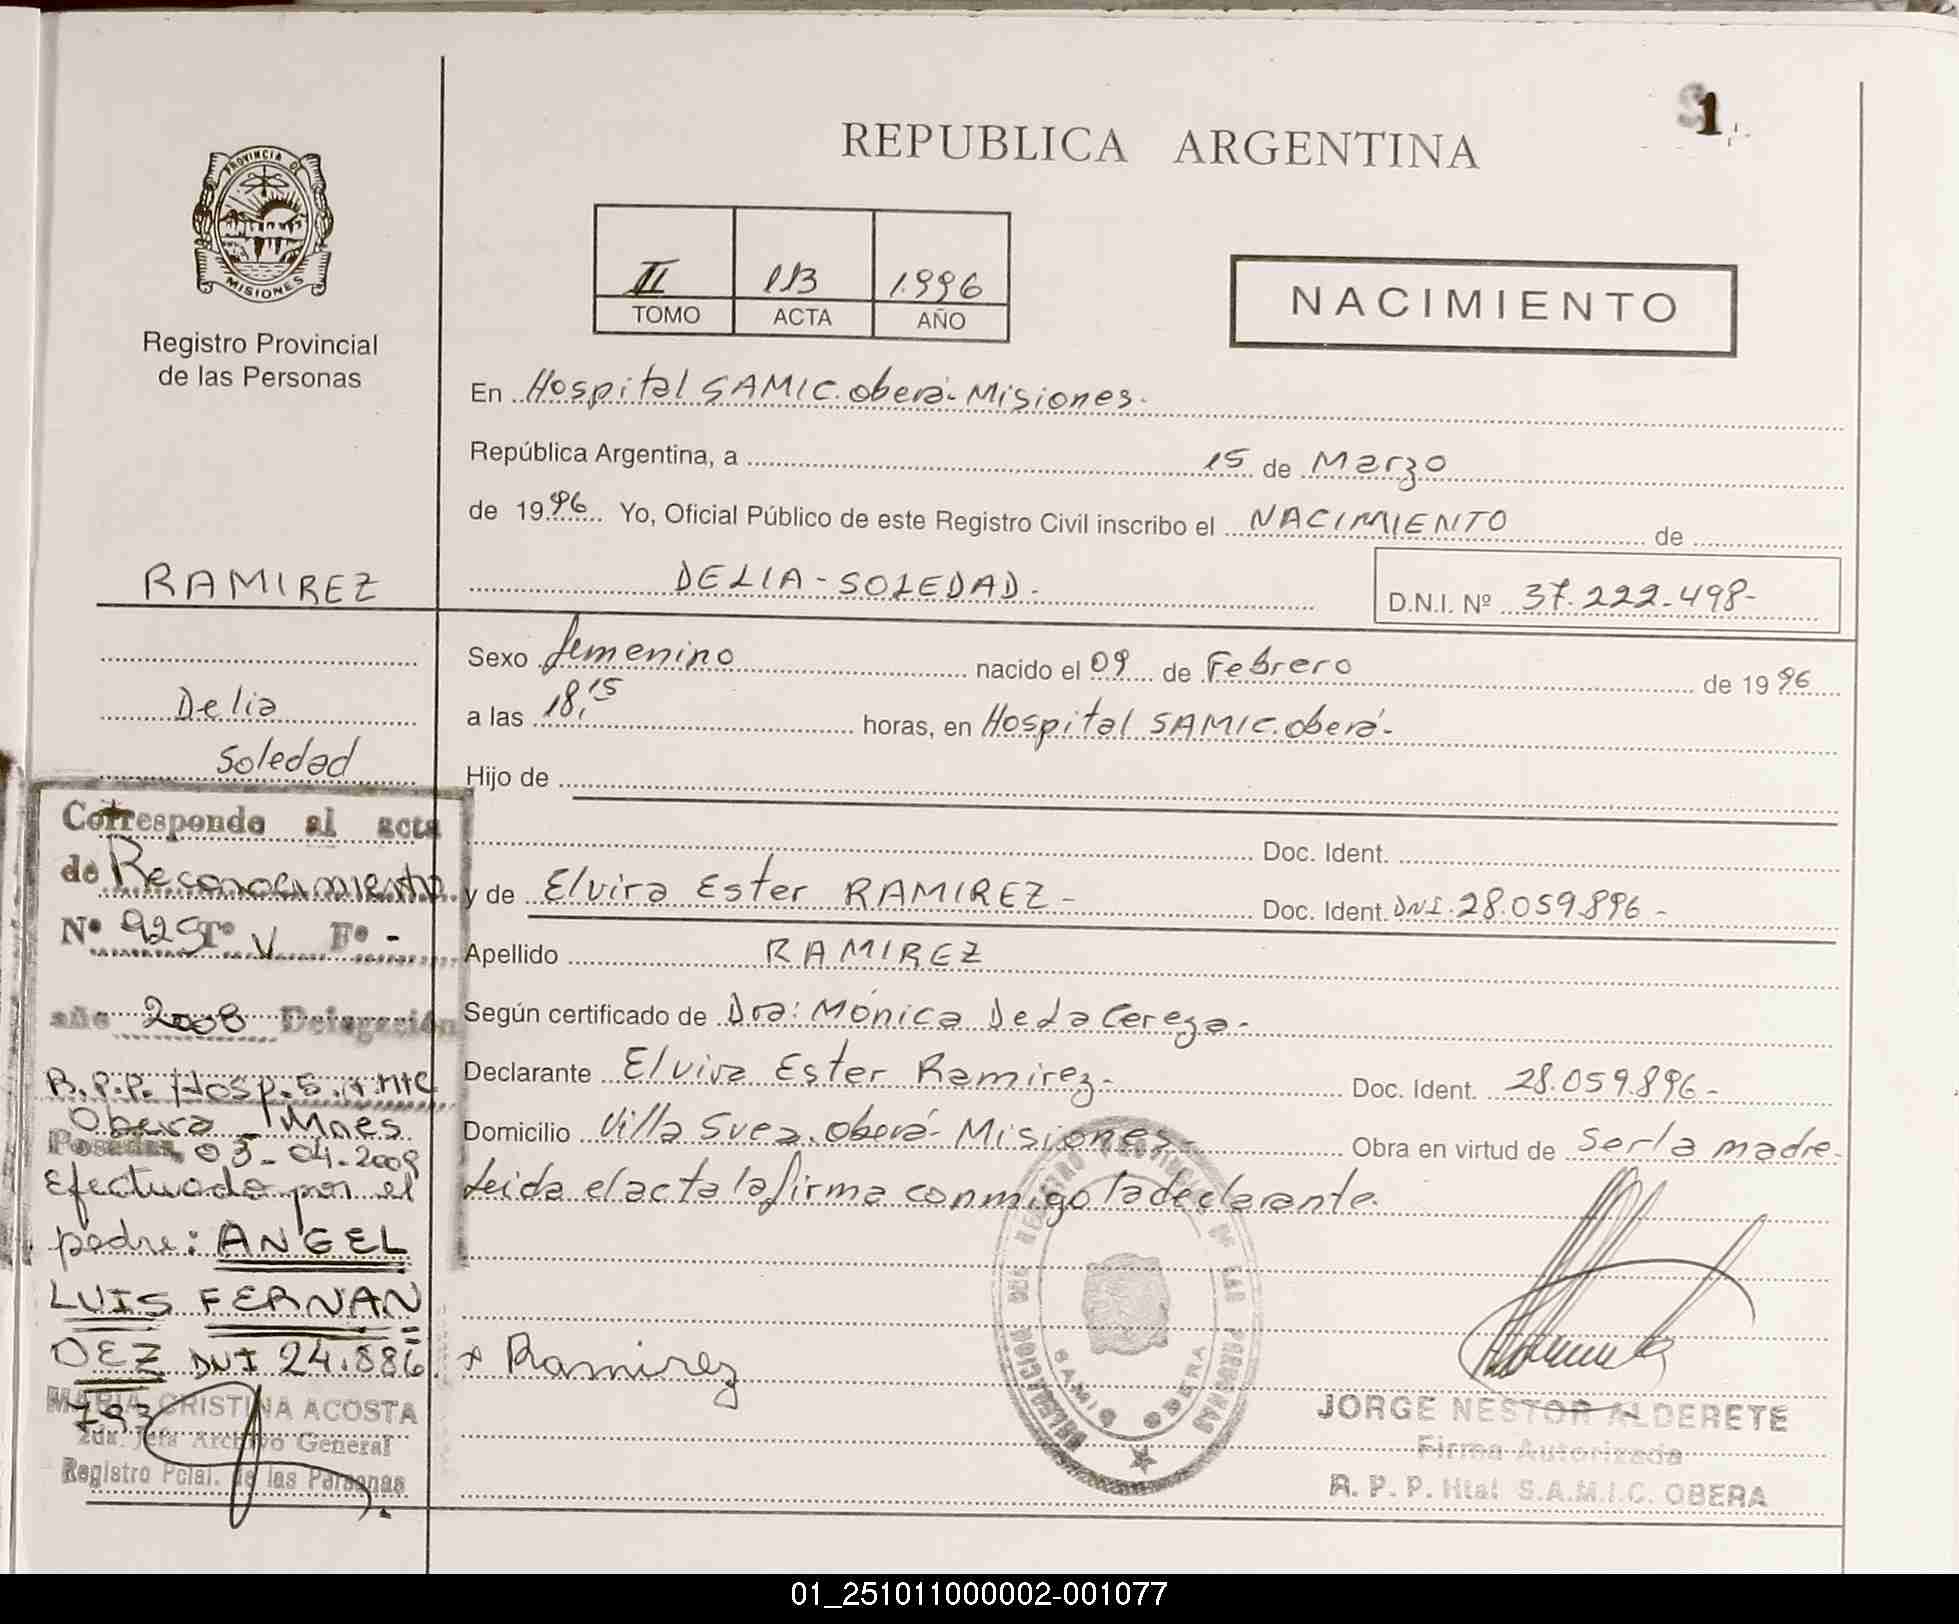 1
REPUBLICA ARGENTINA
PROVINCIA DE
MISIONES
Registro Provincial
de las Personas
II 113 1.996
TOMO ACTA AÑO
NACIMIENTO
En Hospital SAMIC. oberá- Misiones.
República Argentina, a 15 de Marzo
de 1996 Yo, Oficial Público de este Registro Civil inscribo el NACIMIENTO de
DELIA-SOLEDAD.
D.N.I. Nº 37.222.498-
RAMIREZ
Delia
Soledad
Sexo femenino nacido el 09 de Febrero de 1996
a las 18,15 horas, en Hospital SAMIC. oberá-
Hijo de
Doc. Ident.
y de Elvira Ester RAMIREZ- Doc. Ident. DNI. 28.059.896-
Apellido RAMIREZ
Según certificado de Dra: Mónica De La Cereza-
Declarante Elvira Ester Ramirez- Doc. Ident. 28.059.896-
Domicilio Villa Svea. oberá- Misiones- Obra en virtud de Ser la madre-
Leida el acta la firma conmigo la declarante.
x Ramirez
Corresponde al acta
de Reconocimiento
Nº 925 Tº V Fº -
año 2008 Delegación
R.P.P. Hosp. S.AMIC
Oberá - Mnes
Posadas, 03-04-2009
Efectuado por el
padre: ANGEL
LUIS FERNAN
DEZ DNI 24.886.
793
MARIA CRISTINA ACOSTA
2da. Jefa Archivo General
Registro Pcial. de las Personas
DELEGACION DEL REGISTRO PROVINCIAL DE LAS PERSONAS
SAMIC OBERA
JORGE NESTOR ALDERETE
Firma Autorizada
R. P. P. Htal S.A.M.I.C. OBERA
01_251011000002-001077